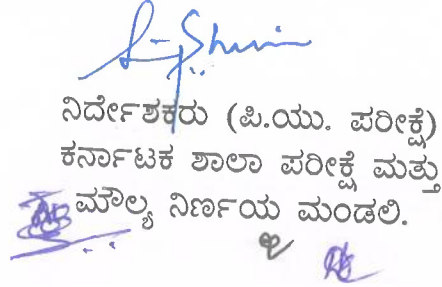 ನಿರ್ದೇಶಕರು (ಪಿ.ಯು. ಪರೀಕ್ಷೆ)
ಕರ್ನಾಟಕ ಶಾಲಾ ಪರೀಕ್ಷೆ ಮತ್ತು
ಮೌಲ್ಯ ನಿರ್ಣಯ ಮಂಡಲಿ.